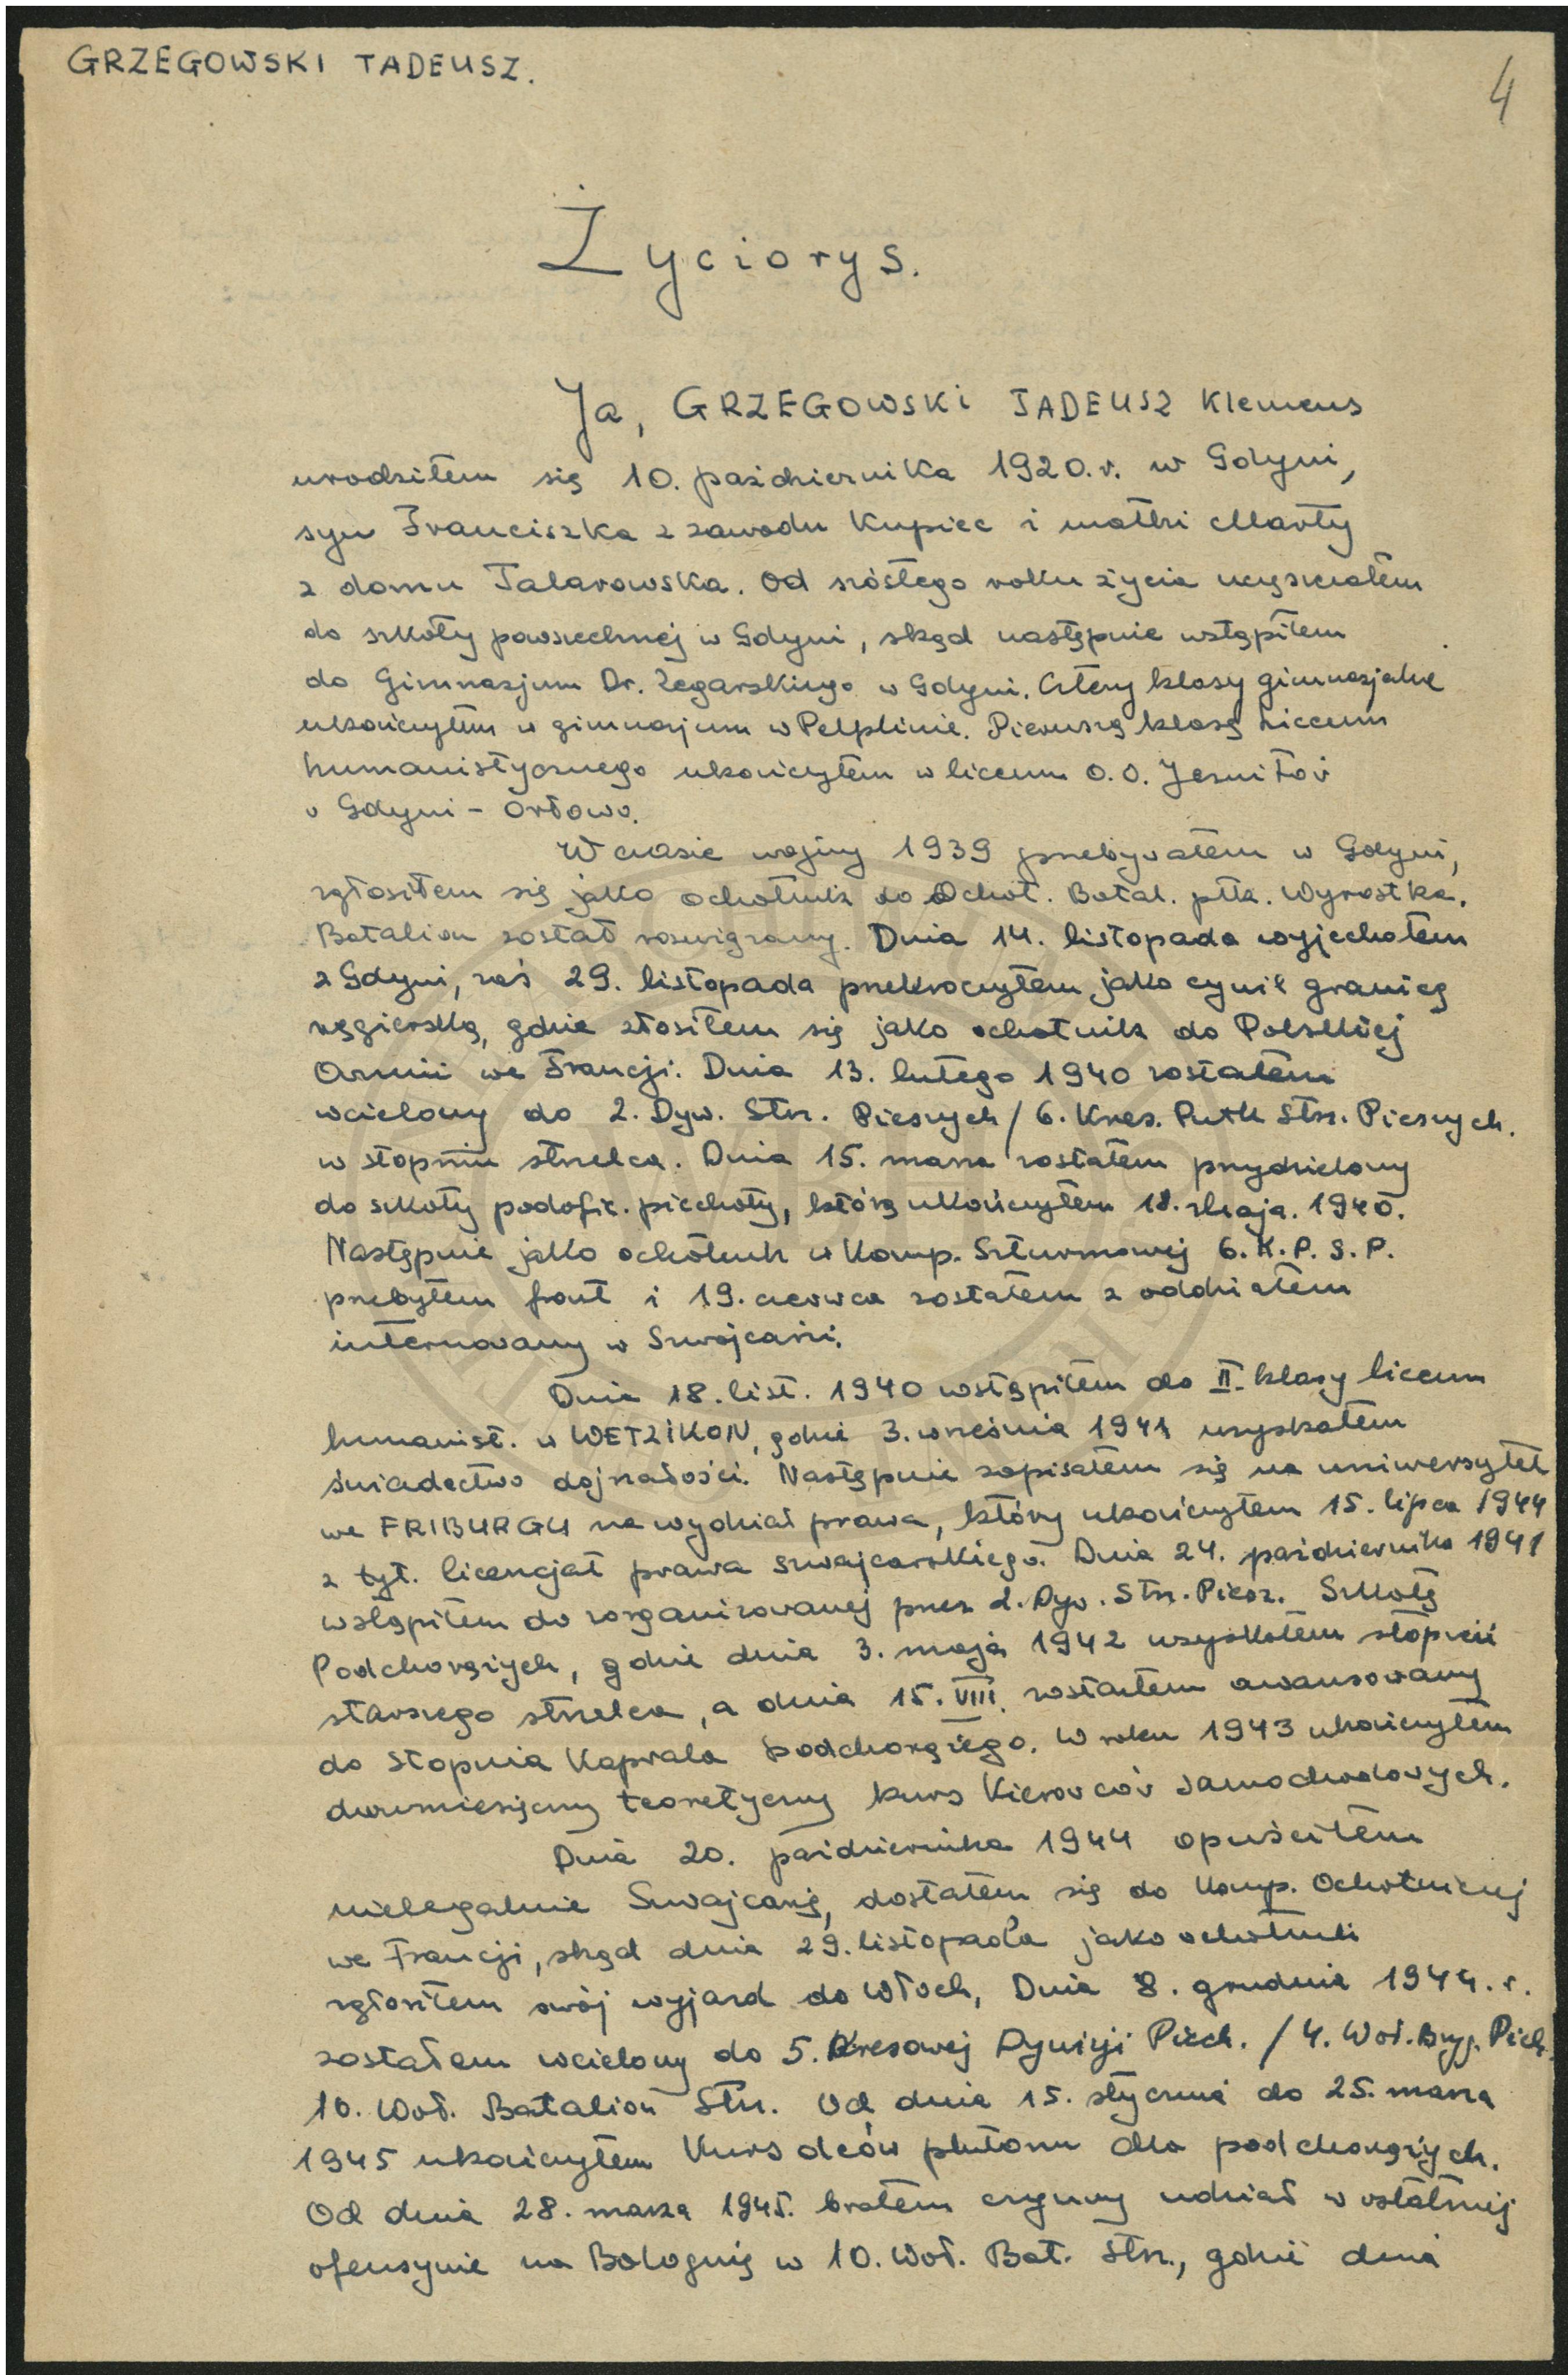 GRZEGOWSKI TADEUSZ.
4
Życiorys.
Ja, GRZEGOWSKI TADEUSZ Klemens
urodziłem się 10. października 1920.r. w Gdyni,
syn Franciszka z zawodu Kupiec i matki Marty
z domu Talarowska. Od szóstego roku życia uczęszczałem
do szkoły powszechnej w Gdyni, skąd następnie wstąpiłem
do Gimnazjum Dr. Zegarskiego w Gdyni. Cztery klasy gimnazjalne
ukończyłem w gimnazjum w Pelplinie. Pierwszą klasę Liceum
humanistycznego ukończyłem w liceum O.O. Jezuitów
w Gdyni - Orłowo.
W czasie wojny 1939 przebywałem w Gdyni,
zgłosiłem się jako ochotnik do Ochot. Batal. płk. Wyrostka.
Batalion został rozwiązany. Dnia 14. listopada wyjechałem
z Gdyni, zaś 29. listopada przekroczyłem jako cywil granicę
węgierską, gdzie złosiłem się jako ochotnik do Polskiej
Armii we Francji. Dnia 13. lutego 1940 zostałem
wcielony do 2. Dyw. Strz. Pieszych / 6. Kres. Pułk Strz. Pieszych.
w stopniu strzelca. Dnia 15. marca zostałem przydzielony
do szkoły podofic. piechoty, którą ukończyłem 18. maja. 1940.
Następnie jako ochotnik w Komp. Szturmowej 6. K. P. S. P.
przebyłem front i 19. czerwca zostałem z oddziałem
internowany w Szwajcarii.
Dnia 18. list. 1940 wstąpiłem do II. klasy liceum
humanist. w WETZIKON, gdzie 3. września 1941 uzyskałem
świadectwo dojrzałości. Następnie zapisałem się na uniwersytet
we FRIBURGU na wydział prawa, który ukończyłem 15. lipca 1944
z tyt. licencjat prawa szwajcarskiego. Dnia 24. października 1941
wstąpiłem do zorganizowanej przez 2. Dyw. Strz. Piesz. Szkołę
Podchorążych, gdzie dnia 3. maja 1942 uzyskałem stopień
starszego strzelca, a dnia 15. VIII. zostałem awansowany
do stopnia Kaprala podchorążego. W roku 1943 ukończyłem
dwumiesięczny teoretyczny kurs Kierowców samochodowych.
Dnia 20. października 1944 opuściłem
nielegalnie Szwajcarię, dostałem się do Komp. Ochotniczej
we Francji, skąd dnia 29. listopada jako ochotnik
zgłosiłem swój wyjazd do Włoch, Dnia 8. grudnia 1944. r.
zostałem wcielony do 5. Kresowej Dywizji Piech. / 4. Woł. Bryg. Piech.
10. Woł. Batalion Strz. Od dnia 15. stycznia do 25. marca
1945 ukończyłem Kurs dców plutonu dla podchorążych.
Od dnia 28. marca 1945. brałem czynny udział w ostatniej
ofensywie na Bolognię w 10. Woł. Bat. Strz., gdzie dnia